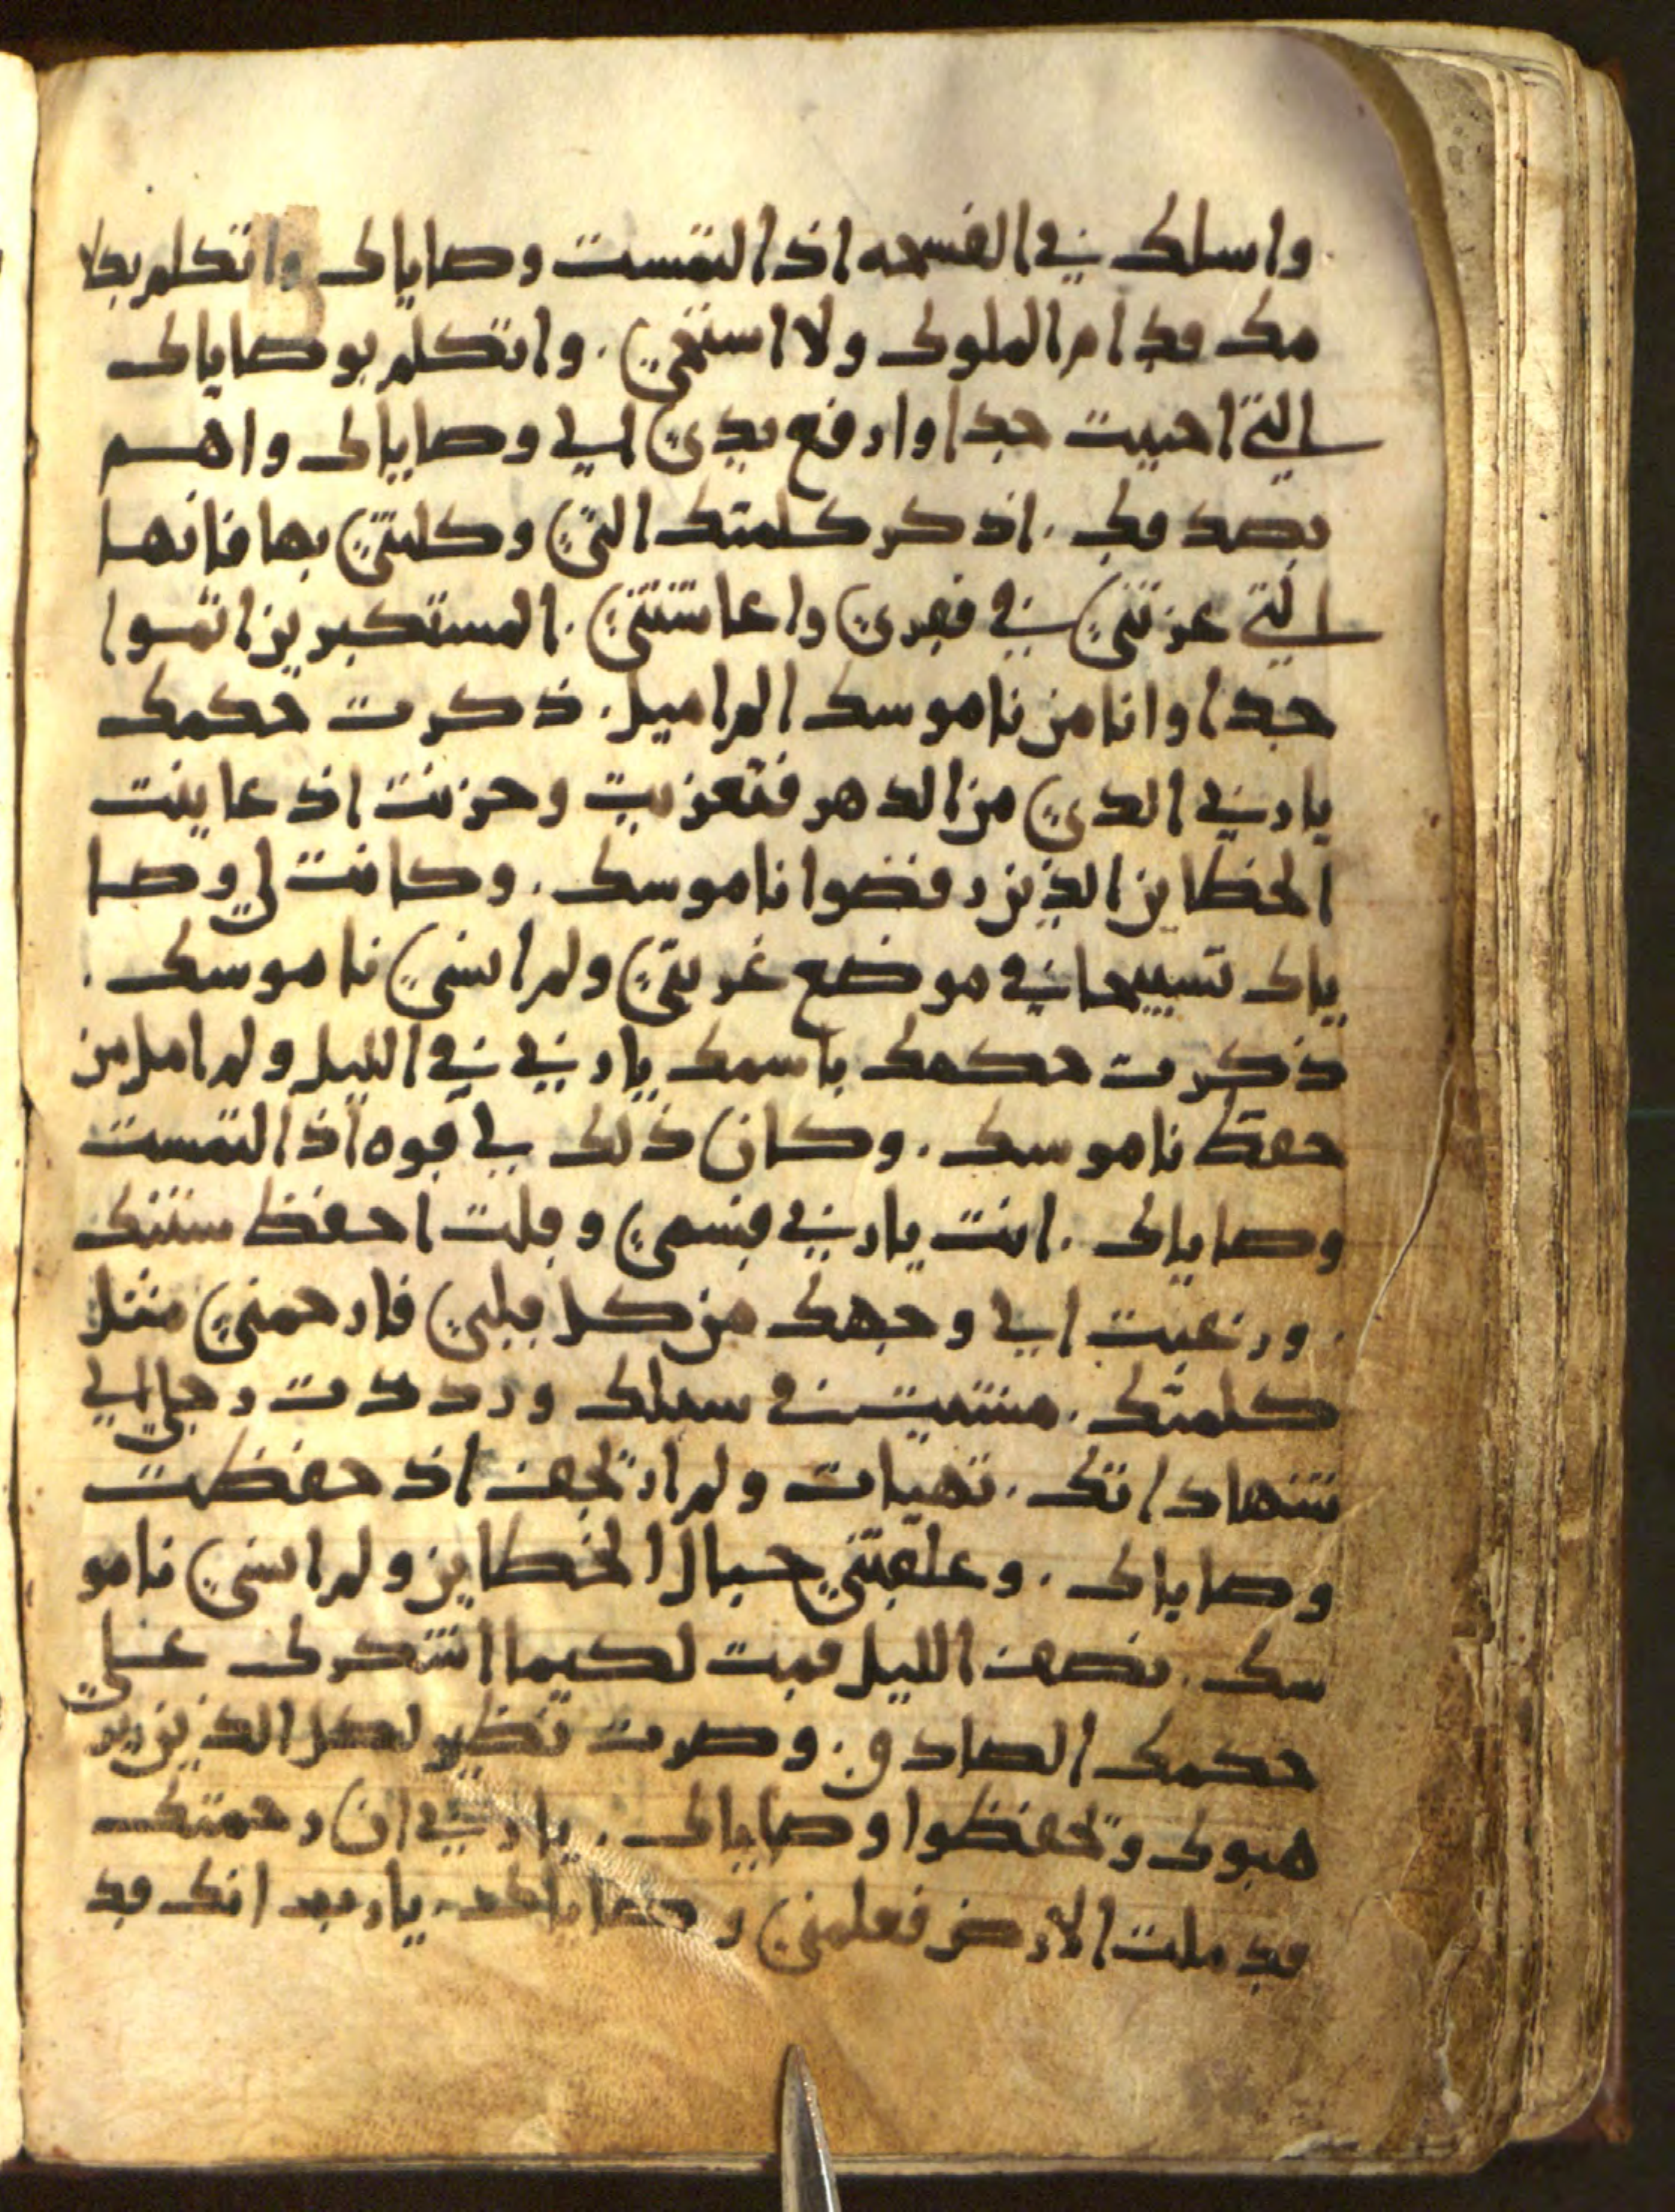 واسلك في الفسحه اذ التمست وصاياك واتكلم بكلا
مك قدام الملوك ولا استحي . واتكلم بوصاياك
التي احببت جدا وارفع يدي الي وصاياك واهم
بصدقك . اذكر كلمتك التي وكلتني بها فانها
التي عزتني في فقري واعاشتني . المستكبرين اثموا
جدا وانا من ناموسك لم اميل . ذكرت حكمك
يا رب الذي من الدهر فتعزيت وحزنت اذ عاينت
الخطاين الذين رفضوا ناموسك . وكانت لي وصا
ياك تسبيحا في موضع غربتي ولم انسي ناموسك .
ذكرت حكمك باسمك يا رب في الليل ولم امل من
حفظ ناموسك . وكان ذلك لي قوه اذ التمست
وصاياك . انت يا رب قسمي وقلت احفظ سنتك
. ورغبت الي وجهك من كل قلبي فارحمني مثل
كلمتك . مشيت في سبلك ورددت رجلي الي
شهاداتك . تهيات ولم ارتجف اذ حفظت
وصاياك . وعلقتني حبال الخطاين ولم انسي نامو
سك . نصف الليل قمت لكيما اشكرك علي
حكمك الصادق . وصرت نظير لكل الذين ير
هبوك وتحفظوا وصاياك . يا رب ان رحمتك
قد ملت الارض فعلمني وصاياك . يا رب انك قد